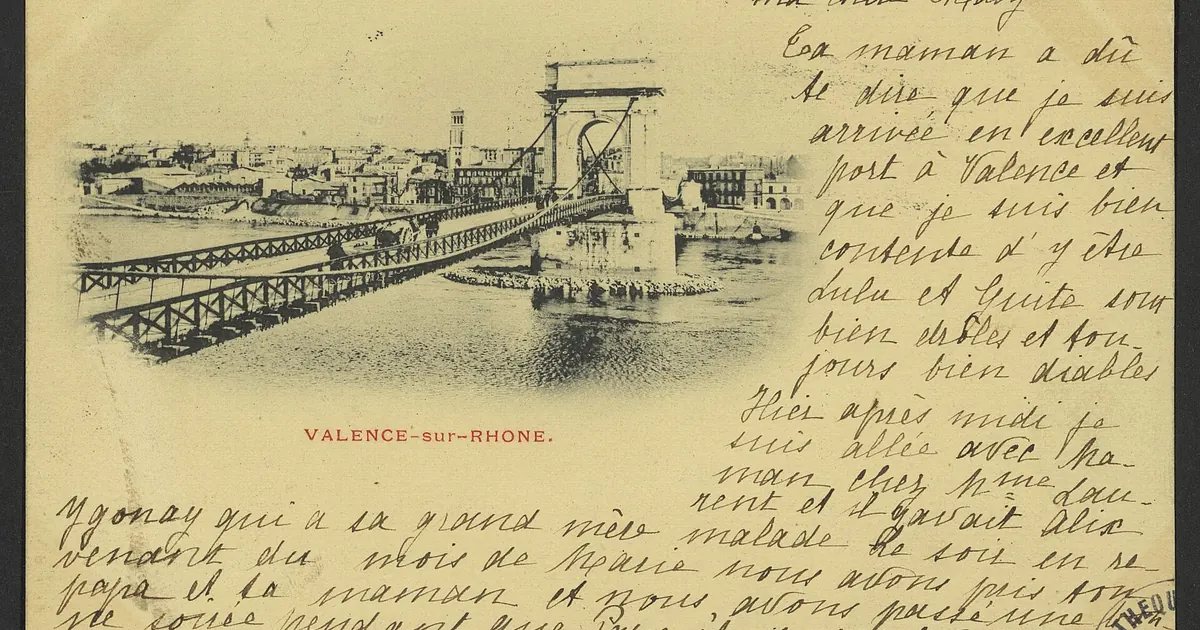 ma chère
Ta maman a dû
te dire que je suis
arrivée en excellent
port à Valence et
que je suis bien
contente d'y être
Lulu et Guite sont
bien drôles et tou-
jours bien diables
Hier après midi je
suis allée avec Ma-
man chez Mme Lau-
rent et il y avait Alix
Ygonay qui a sa grand mère malade Le soir en re-
venant du mois de Marie nous avons pris ton
papa et ta maman et nous avons passé une
soirée pendant que
VALENCE-sur-RHONE.
THEQU